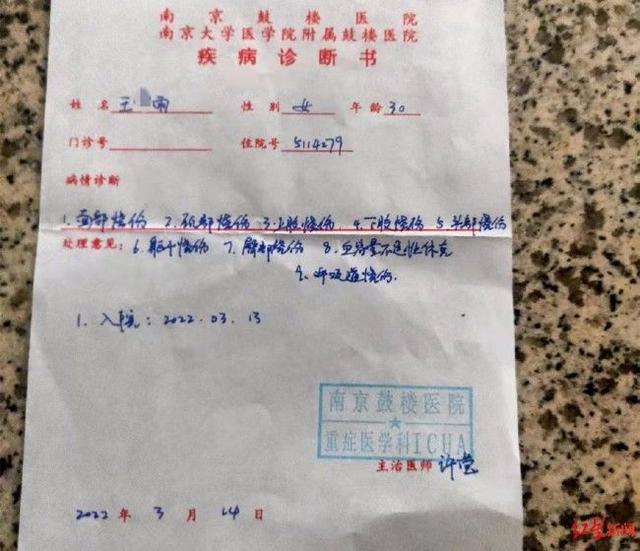 南京鼓楼医院
南京大学医学院附属鼓楼医院
疾病诊断书
姓名 王 雨 性别 女 年龄 30
门诊号 住院号 5114279
病情诊断
1. 面部烧伤 2. 颈部烧伤 3. 上肢烧伤 4. 下肢烧伤 5. 头部烧伤
处理意见： 6. 躯干烧伤 7. 臀部烧伤 8. 血容量不足性休克
9. 呼吸道烧伤.
1. 入院：2022.03.13
南京鼓楼医院
重症医学科ICUA
主治医师 许莹
2022 年 3 月 14 日
红星新闻